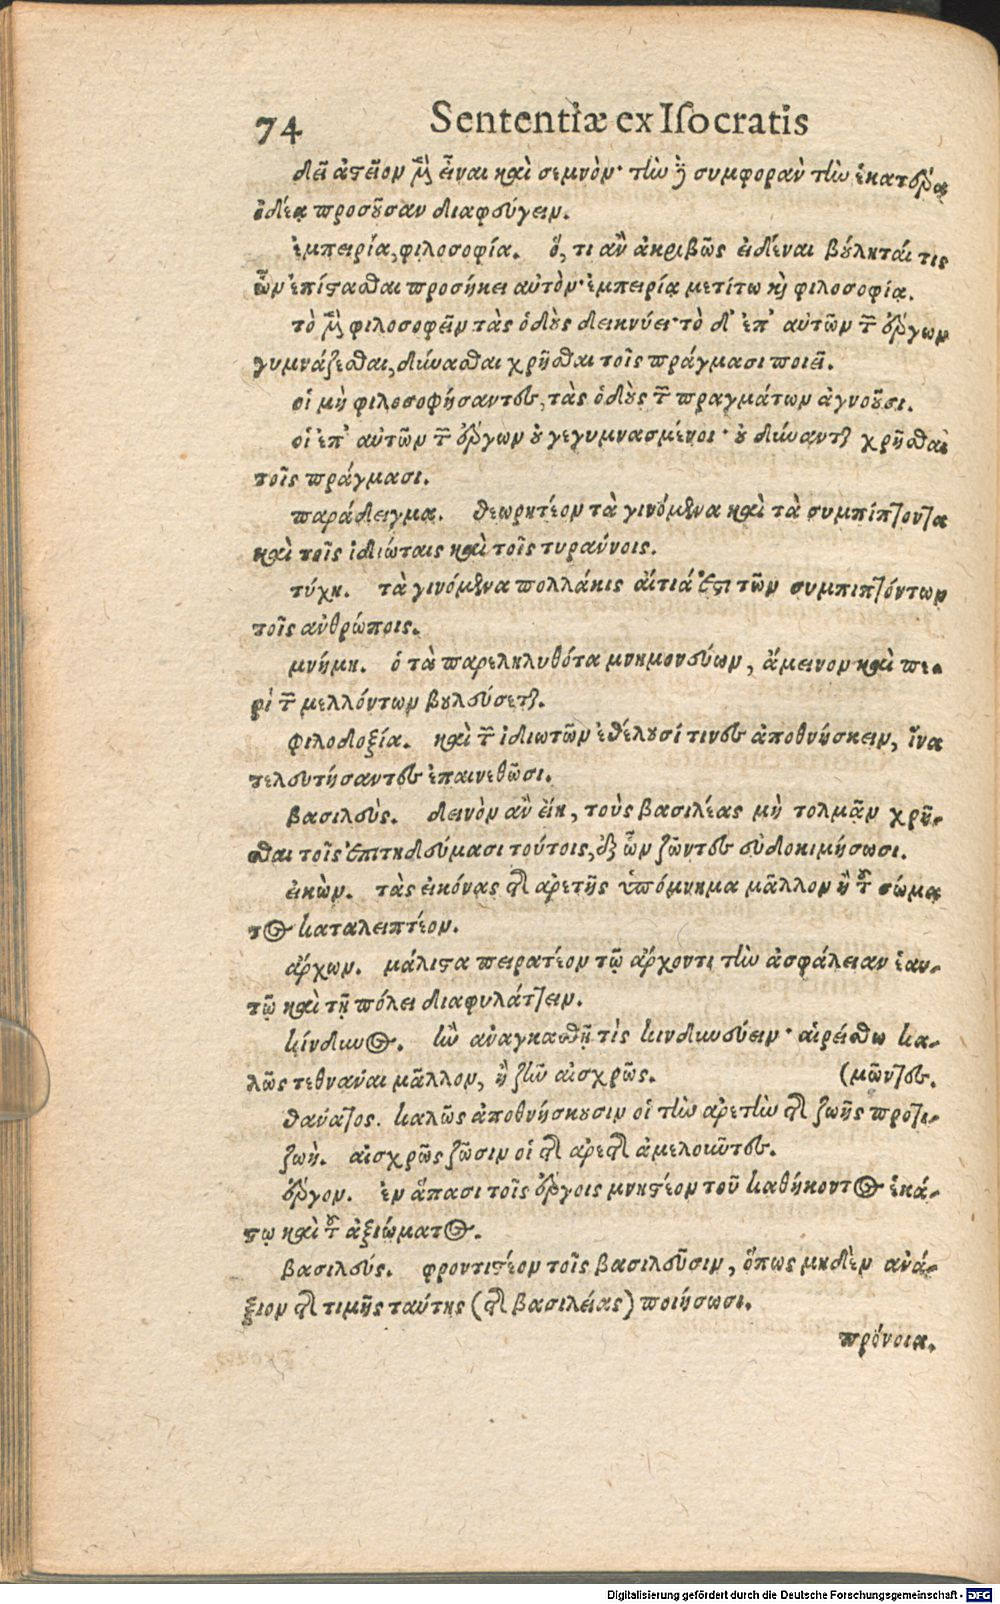 74 Sententiæ ex Iſocratis
δεῖ ἀστεῖον μὲν εἶναι καὶ σεμνόν· τὴν δὲ συμφορὰν τὴν ἑκατέρᾳ
ἰδέᾳ προσοῦσαν διαφεύγειν.
ἐμπειρία, φιλοσοφία. ὅ, τι ἂν ἀκριβῶς εἰδέναι βούληταί τις
ὧν ἐπίστασθαι προσήκει αὐτὸν· ἐμπειρίᾳ μετίτω καὶ φιλοσοφίᾳ.
τὸ μὲν φιλοσοφεῖν τὰς ὁδοὺς δεικνύει· τὸ δ' ἐπ' αὐτῶν τῶν ἔργων
γυμνάζεσθαι, δύνασθαι χρῆσθαι τοῖς πράγμασι ποιεῖ.
οἱ μὴ φιλοσοφήσαντες, τὰς ὁδοὺς τῶν πραγμάτων ἀγνοοῦσι.
οἱ ἐπ' αὐτῶν τῶν ἔργων οὐ γεγυμνασμένοι· οὐ δύνανται χρῆσθαι
τοῖς πράγμασι.
παράδειγμα. θεωρητέον τὰ γινόμενα καὶ τὰ συμπίπτοντα
καὶ τοῖς ἰδιώταις καὶ τοῖς τυράννοις.
τύχη. τὰ γινόμενα πολλάκις αἴτιά ἐστι τῶν συμπιπτόντων
τοῖς ἀνθρώποις.
μνήμη. ὁ τὰ παρεληλυθότα μνημονεύων, ἄμεινον καὶ πε-
ρὶ τῶν μελλόντων βουλεύσεται.
φιλοδοξία. καὶ τῶν ἰδιωτῶν ἐθέλουσί τινες ἀποθνήσκειν, ἵνα
τελευτήσαντες ἐπαινεθῶσι.
βασιλεὺς. δεινὸν ἂν εἴη, τοὺς βασιλέας μὴ τολμᾷν χρῆ-
σθαι τοῖς ἐπιτηδεύμασι τούτοις, ἐξ ὧν ζῶντες εὐδοκιμήσωσι.
εἰκὼν. τὰς εἰκόνας τῆς ἀρετῆς ὑπόμνημα μᾶλλον ἢ τοῦ σώμα
τος καταλειπτέον.
ἄρχων. μάλιστα πειρατέον τῷ ἄρχοντι τὴν ἀσφάλειαν ἑαυ-
τῷ καὶ τῇ πόλει διαφυλάττειν.
κίνδυνος. ἢν ἀναγκασθῇ τὶς κινδυνεύειν· αἱρείσθω κα-
λῶς τεθνάναι μᾶλλον, ἢ ζῆν αἰσχρῶς. (μῶντες.
θάνατος. καλῶς ἀποθνήσκουσιν οἱ τὴν ἀρετὴν τῆς ζωῆς προτι-
ζωὴ. αἰσχρῶς ζῶσιν οἱ τῆς ἀρετῆς ἀμελοῦντες.
ἔργον. ἐν ἅπασι τοῖς ἔργοις μνηστέον τοῦ καθήκοντος ἑκά-
στῳ καὶ τοῦ ἀξιώματος.
βασιλεύς. φροντιστέον τοῖς βασιλεῦσιν, ὅπως μηδὲν ἀνά-
ξιον τῆς τιμῆς ταύτης (τῆς βασιλείας) ποιήσωσι.
πρόνοια.
Digitalisierung gefördert durch die Deutsche Forschungsgemeinschaft - DFG